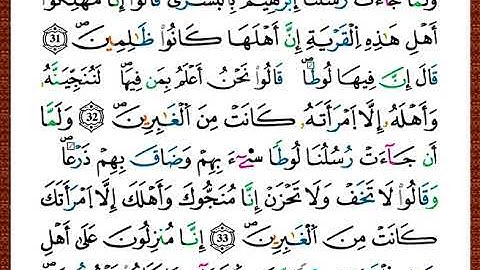 وَلَمَّا جَآءَتْ رُسُلُنَآ إِبْرَٰهِيمَ بِٱلْبُشْرَىٰ قَالُوٓا۟ إِنَّا مُهْلِكُوٓا۟
أَهْلِ هَٰذِهِ ٱلْقَرْيَةِ إِنَّ أَهْلَهَا كَانُوا۟ ظَٰلِمِينَ ۝31
قَالَ إِنَّ فِيهَا لُوطًا ۚ قَالُوا۟ نَحْنُ أَعْلَمُ بِمَن فِيهَا ۖ لَنُنَجِّيَنَّهُۥ
وَأَهْلَهُۥٓ إِلَّا ٱمْرَأَتَهُۥ كَانَتْ مِنَ ٱلْغَٰبِرِينَ ۝32 وَلَمَّآ
أَن جَآءَتْ رُسُلُنَا لُوطًا سِىٓءَ بِهِمْ وَضَاقَ بِهِمْ ذَرْعًا
وَقَالُوا۟ لَا تَخَفْ وَلَا تَحْزَنْ إِنَّا مُنَجُّوكَ وَأَهْلَكَ إِلَّا ٱمْرَأَتَكَ
كَانَتْ مِنَ ٱلْغَٰبِرِينَ ۝33 إِنَّا مُنزِلُونَ عَلَىٰٓ أَهْلِ